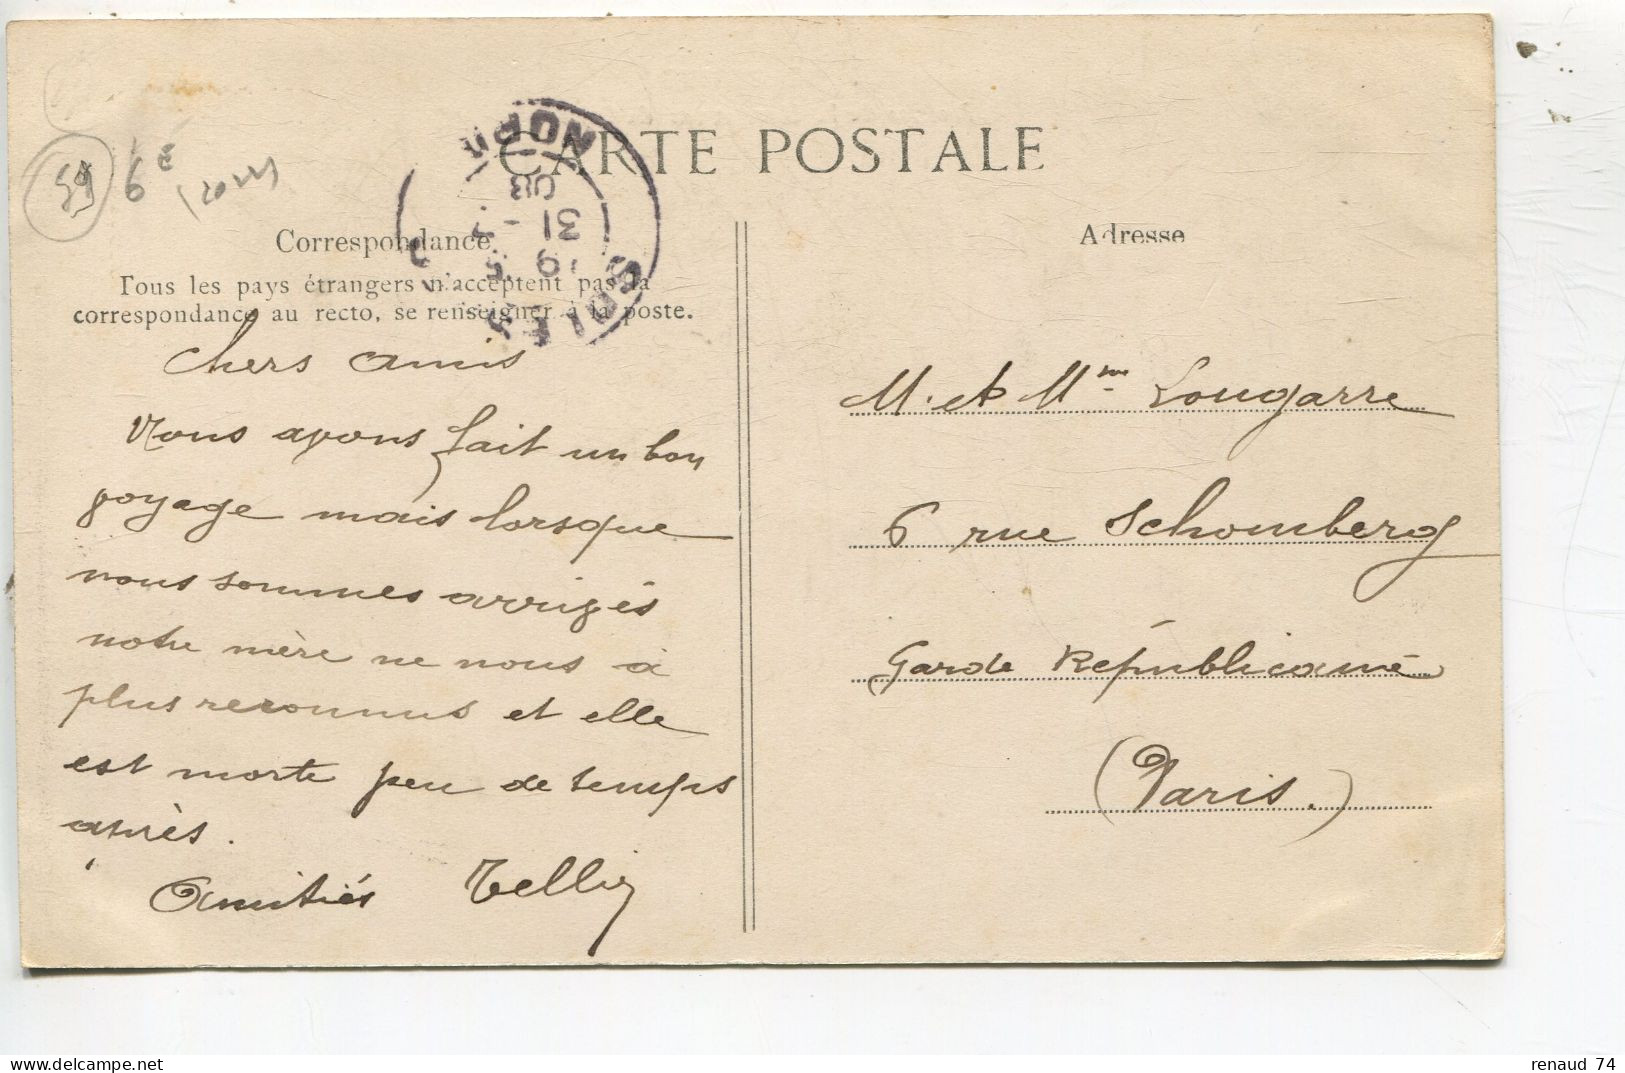 59
6 €
CARTE POSTALE
NORD
31 - 5
08
Correspondance
Tous les pays étrangers n'acceptent pas la
correspondance au recto, se renseigner à la poste.
Chers amis
Nous avons fait un bon
voyage mais lorsque
nous sommes arrivés
notre mère ne nous a
plus reconnus et elle
est morte peu de temps
après.
Amitiés Tellier
Adresse
M. et Mme Lougarre
6 rue Schomberg
Garde Républicaine
(Paris.)
www.delcampe.net
renaud 74